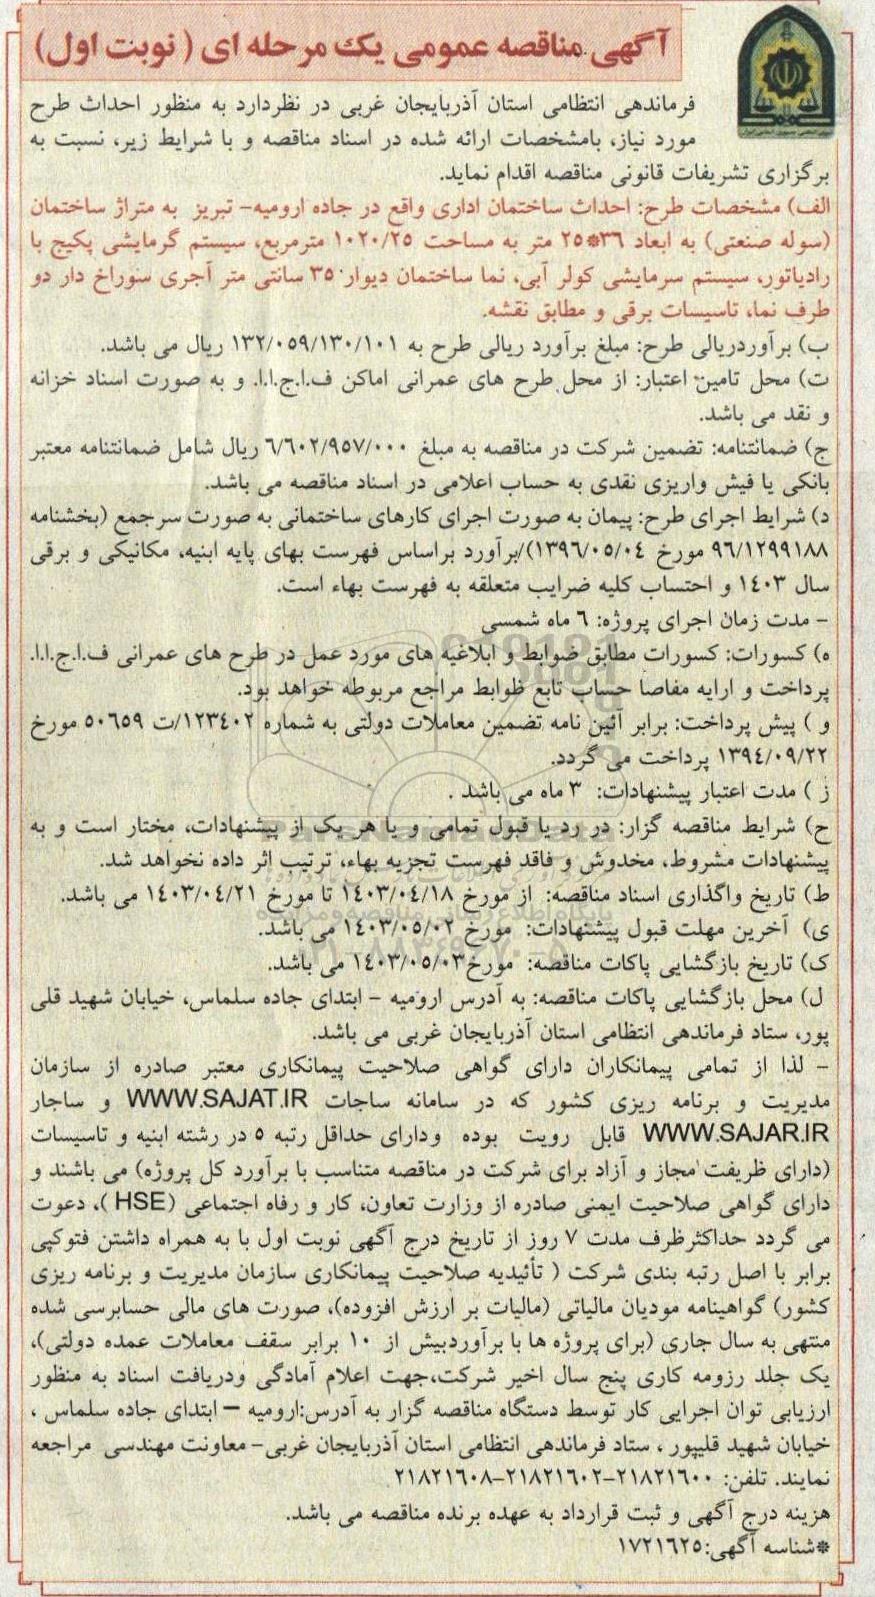 آگهی مناقصه عمومی یک مرحله ای ( نوبت اول)
فرماندهی انتظامی استان آذربایجان غربی در نظردارد به منظور احداث طرح
مورد نیاز، بامشخصات ارائه شده در اسناد مناقصه و با شرایط زیر، نسبت به
برگزاری تشریفات قانونی مناقصه اقدام نماید.
الف) مشخصات طرح: احداث ساختمان اداری واقع در جاده ارومیه- تبریز به متراژ ساختمان
(سوله صنعتی) به ابعاد ۳۶*۲۵ متر به مساحت ۱۰۲۰/۲۵ مترمربع، سیستم گرمایشی پکیج با
رادیاتور، سیستم سرمایشی کولر آبی، نما ساختمان دیوار ۳۵ سانتی متر آجری سوراخ دار دو
طرف نما، تاسیسات برقی و مطابق نقشه.
ب) برآوردریالی طرح: مبلغ برآورد ریالی طرح به ۱۳۲/۰۵۹/۱۳۰/۱۰۱ ریال می باشد.
ت) محل تامین اعتبار: از محل طرح های عمرانی اماکن ف.ا.ج.ا.ا. و به صورت اسناد خزانه
و نقد می باشد.
ج) ضمانتنامه: تضمین شرکت در مناقصه به مبلغ ۶/۶۰۲/۹۵۷/۰۰۰ ریال شامل ضمانتنامه معتبر
بانکی یا فیش واریزی نقدی به حساب اعلامی در اسناد مناقصه می باشد.
د) شرایط اجرای طرح: پیمان به صورت اجرای کارهای ساختمانی به صورت سرجمع (بخشنامه
۹۶/۱۲۹۹۱۸۸ مورخ ۱۳۹۶/۰۵/۰۴)/برآورد براساس فهرست بهای پایه ابنیه، مکانیکی و برقی
سال ۱۴۰۳ و احتساب کلیه ضرایب متعلقه به فهرست بهاء است.
- مدت زمان اجرای پروژه: ۶ ماه شمسی
ه) کسورات: کسورات مطابق ضوابط و ابلاغیه های مورد عمل در طرح های عمرانی ف.ا.ج.ا.ا.
پرداخت و ارایه مفاصا حساب تابع ظوابط مراجع مربوطه خواهد بود.
و ) پیش پرداخت: برابر آئین نامه تضمین معاملات دولتی به شماره ۱۲۳۴۰۲/ت ۵۰۶۵۹ مورخ
۱۳۹۴/۰۹/۲۲ پرداخت می گردد.
ز ) مدت اعتبار پیشنهادات: ۳ ماه می باشد .
ح) شرایط مناقصه گزار: در رد یا قبول تمامی و یا هر یک از پیشنهادات، مختار است و به
پیشنهادات مشروط، مخدوش و فاقد فهرست تجزیه بهاء، ترتیب اثر داده نخواهد شد.
ط) تاریخ واگذاری اسناد مناقصه: از مورخ ۱۴۰۳/۰۴/۱۸ تا مورخ ۱۴۰۳/۰۴/۲۱ می باشد.
ی) آخرین مهلت قبول پیشنهادات: مورخ ۱۴۰۳/۰۵/۰۲ می باشد.
ک) تاریخ بازگشایی پاکات مناقصه: مورخ۱۴۰۳/۰۵/۰۳ می باشد.
ل) محل بازگشایی پاکات مناقصه: به آدرس ارومیه - ابتدای جاده سلماس، خیابان شهید قلی
پور، ستاد فرماندهی انتظامی استان آذربایجان غربی می باشد.
- لذا از تمامی پیمانکاران دارای گواهی صلاحیت پیمانکاری معتبر صادره از سازمان
مدیریت و برنامه ریزی کشور که در سامانه ساجات WWW.SAJAT.IR و ساجار
WWW.SAJAR.IR قابل رویت بوده ودارای حداقل رتبه ۵ در رشته ابنیه و تاسیسات
(دارای ظریفت مجاز و آزاد برای شرکت در مناقصه متناسب با برآورد کل پروژه) می باشند و
دارای گواهی صلاحیت ایمنی صادره از وزارت تعاون، کار و رفاه اجتماعی (HSE )، دعوت
می گردد حداکثرظرف مدت ۷ روز از تاریخ درج آگهی نوبت اول با به همراه داشتن فتوکپی
برابر با اصل رتبه بندی شرکت ( تأئیدیه صلاحیت پیمانکاری سازمان مدیریت و برنامه ریزی
کشور) گواهینامه مودیان مالیاتی (مالیات بر ارزش افزوده)، صورت های مالی حسابرسی شده
منتهی به سال جاری (برای پروژه ها با برآوردبیش از ۱۰ برابر سقف معاملات عمده دولتی)،
یک جلد رزومه کاری پنج سال اخیر شرکت،جهت اعلام آمادگی ودریافت اسناد به منظور
ارزیابی توان اجرایی کار توسط دستگاه مناقصه گزار به آدرس:ارومیه – ابتدای جاده سلماس ،
خیابان شهید قلیپور ، ستاد فرماندهی انتظامی استان آذربایجان غربی- معاونت مهندسی مراجعه
نمایند. تلفن: ۲۱۸۲۱۶۰۰-۲۱۸۲۱۶۰۲-۲۱۸۲۱۶۰۸
هزینه درج آگهی و ثبت قرارداد به عهده برنده مناقصه می باشد.
*شناسه آگهی:۱۷۲۱۶۲۵